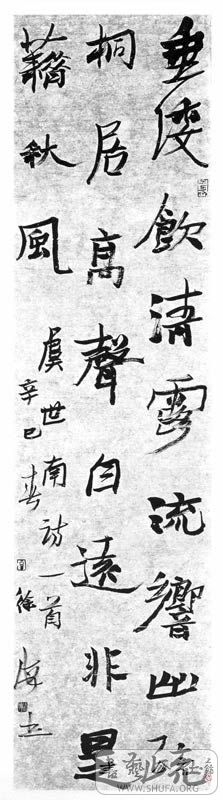 垂緌飲清露流響出疏
桐居高聲自遠非是
藉秋風
虞世南詩一首
辛巳春 徐
WWW.SHUFA.ORG